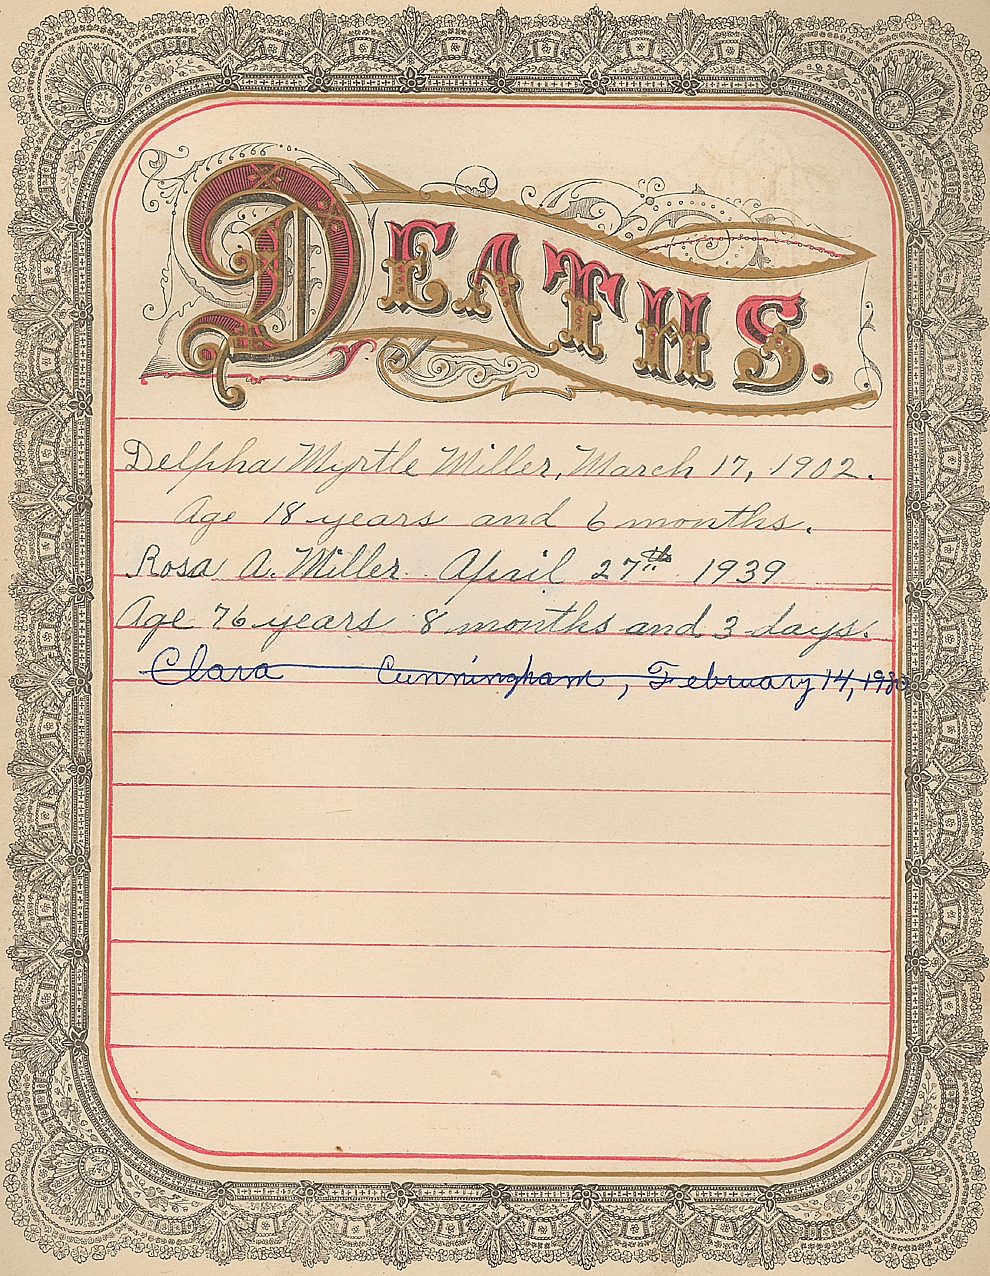 DEATHS.
Delpha Myrtle Miller, March 17, 1902.
Age 18 years and 6 months.
Rosa A. Miller April 27th 1939
Age 76 years 8 months and 3 days.
Clara Cunningham, February 14,